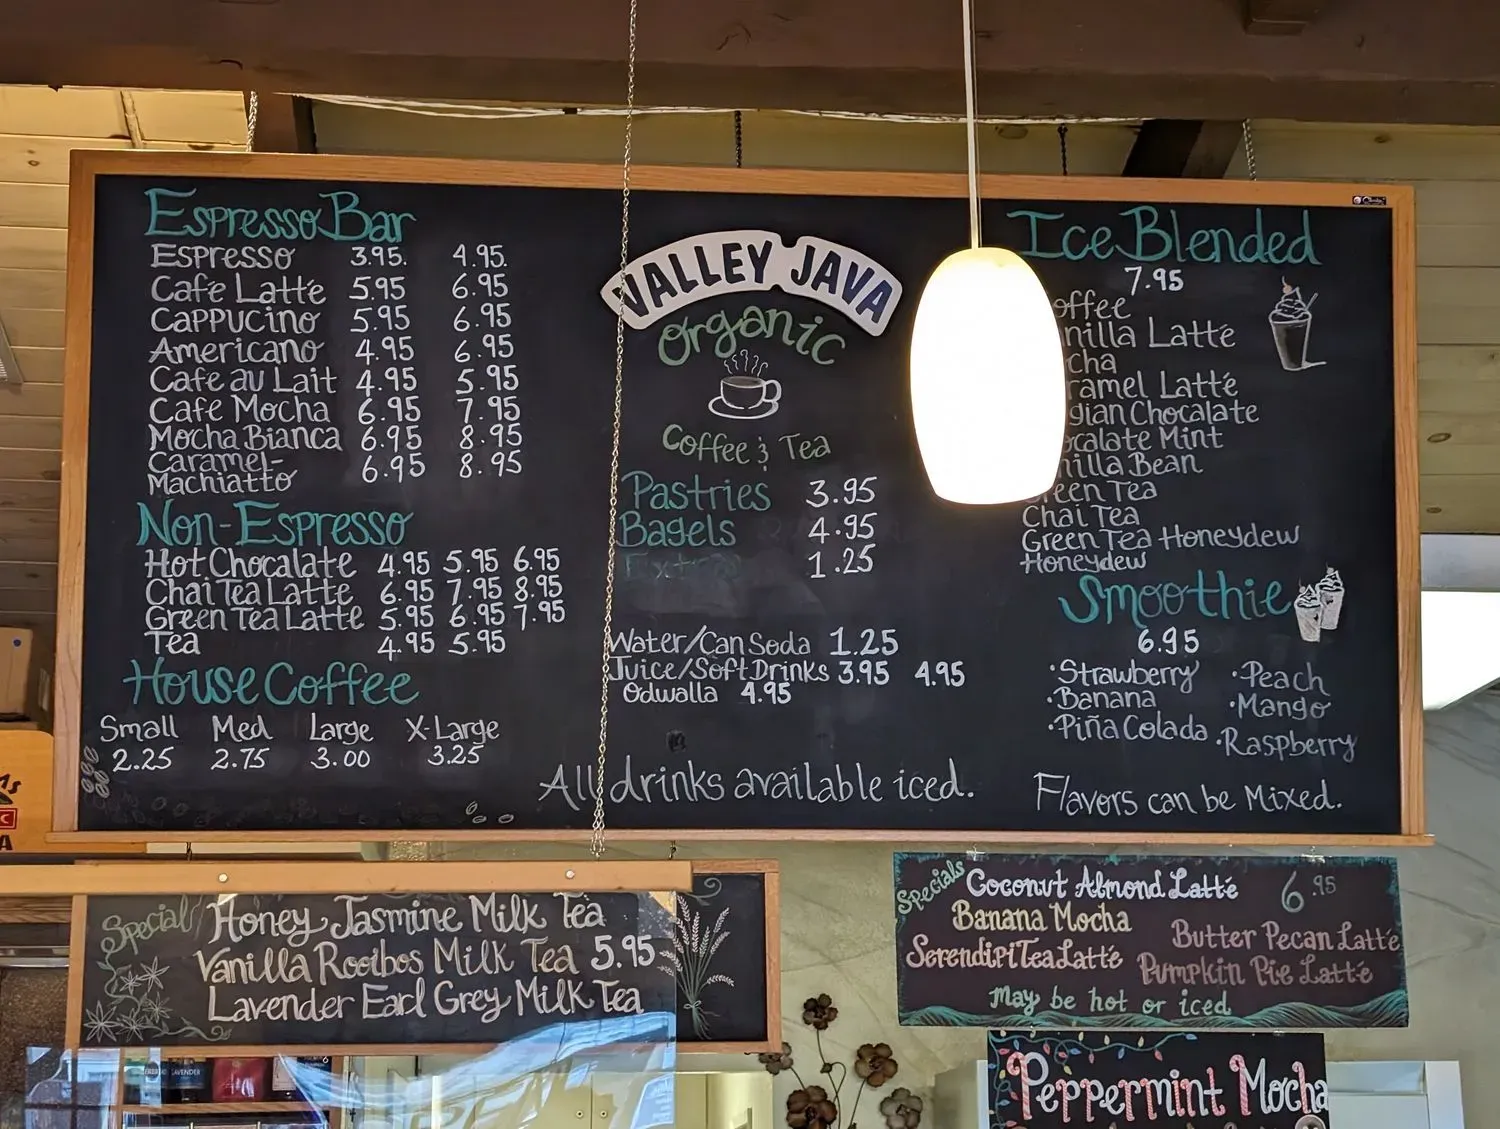 Espresso Bar
Espresso 3.95. 4.95.
Cafe Latte 5.95 6.95
Cappucino 5.95 6.95
Americano 4.95 6.95
Cafe au Lait 4.95 5.95
Cafe Mocha 6.95 7.95
Mocha Bianca 6.95 8.95
Caramel-
Machiatto 6.95 8.95
Non-Espresso
Hot Chocalate 4.95 5.95 6.95
Chai Tea Latte 6.95 7.95 8.95
Green Tea Latte 5.95 6.95 7.95
Tea 4.95 5.95
House Coffee
Small Med Large X-Large
2.25 2.75 3.00 3.25
VALLEY JAVA
organic
Coffee & Tea
Pastries 3.95
Bagels 4.95
Extra 1.25
Water/Can Soda 1.25
Juice/Soft Drinks 3.95 4.95
Odwalla 4.95
All drinks available iced.
Ice Blended
7.95
offee
nilla Latté
cha
ramel Latté
gian Chocalate
ocalate Mint
nilla Bean
Green Tea
Chai Tea
Green Tea Honeydew
Honeydew
Smoothie
6.95
•Strawberry •Peach
•Banana •Mango
•Piña Colada •Raspberry
Flavors can be Mixed.
Special
Honey Jasmine Milk Tea
Vanilla Rooibos Milk Tea 5.95
Lavender Earl Grey Milk Tea
Specials
Coconut Almond Latté 6.95
Banana Mocha
Butter Pecan Latté
SerendipiTea Latté
Pumpkin Pie Latté
May be hot or iced
Peppermint Mocha